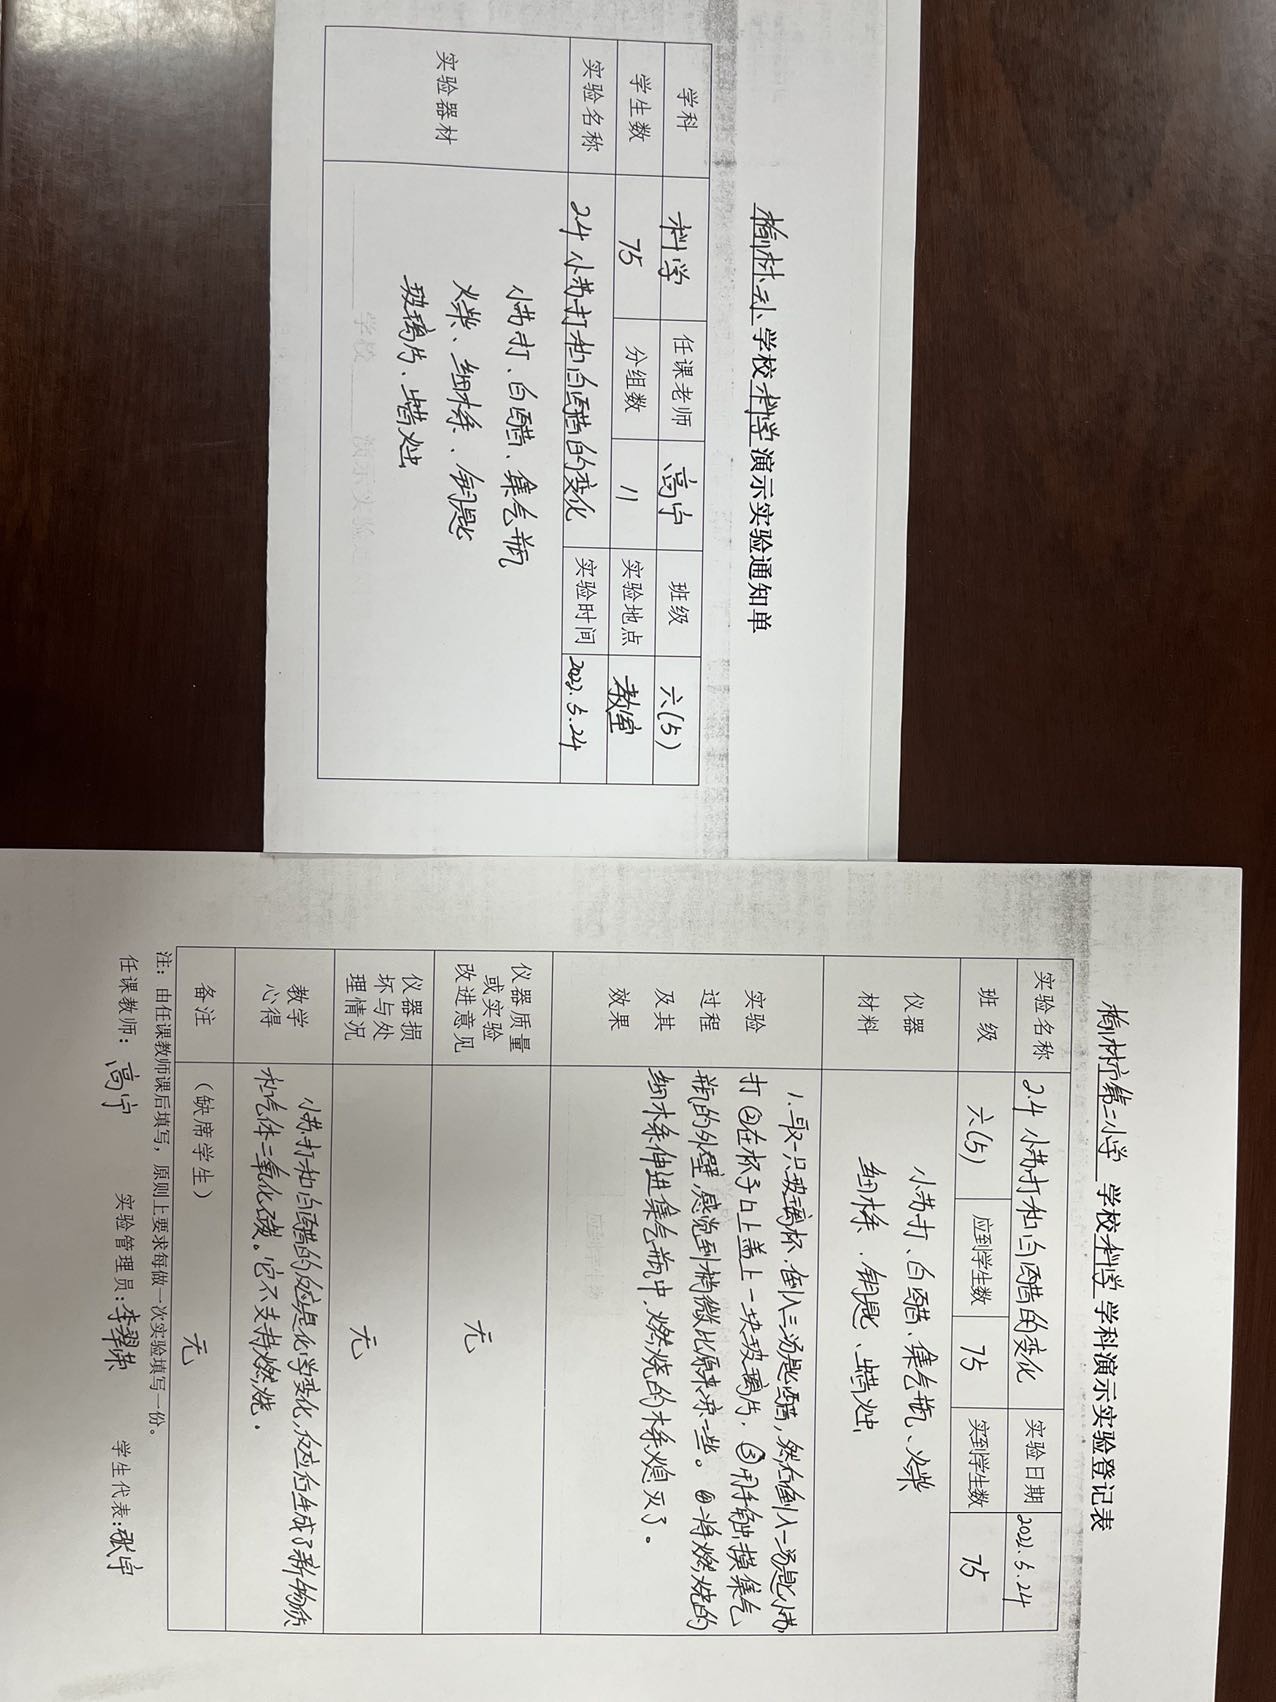 榆林二小学校科学演示实验通知单
学科 科学 任课老师 高宁 班级 六(5)
学生数 75 分组数 11 实验地点 教室
实验名称 2.4 小苏打和白醋的变化 实验时间 2022.5.24
实验器材
小苏打、白醋、集气瓶
火柴、细木条、钥匙
玻璃片、蜡烛
榆林市第二小学 学校科学学科演示实验登记表
实验名称 2.4 小苏打和白醋的变化 实验日期 2022.5.24
班级 六(5) 应到学生数 75 实到学生数 75
仪器
材料
小苏打、白醋、集气瓶、火柴
细木条、钥匙、蜡烛
实验
过程
及其
效果
1.取一只玻璃杯,倒入三汤匙醋,然后倒入一汤匙小苏
打 ②在杯子口上盖上一块玻璃片.③用手触摸集气
瓶的外壁,感觉到稍微比原来凉一些。④将燃烧的
细木条伸进集气瓶中,燃烧的木条熄灭了.
仪器质量
或实验
改进意见
无
仪器损
坏与处
理情况
无
教学
心得
小苏打和白醋的反应是化学变化,反应后生成了新物质
和气体二氧化碳。它不支持燃烧.
备注 (缺席学生) 无
注：由任课教师课后填写，原则上要求每做一次实验填写一份。
任课教师：高宁 实验管理员：李翠荣 学生代表：张宇